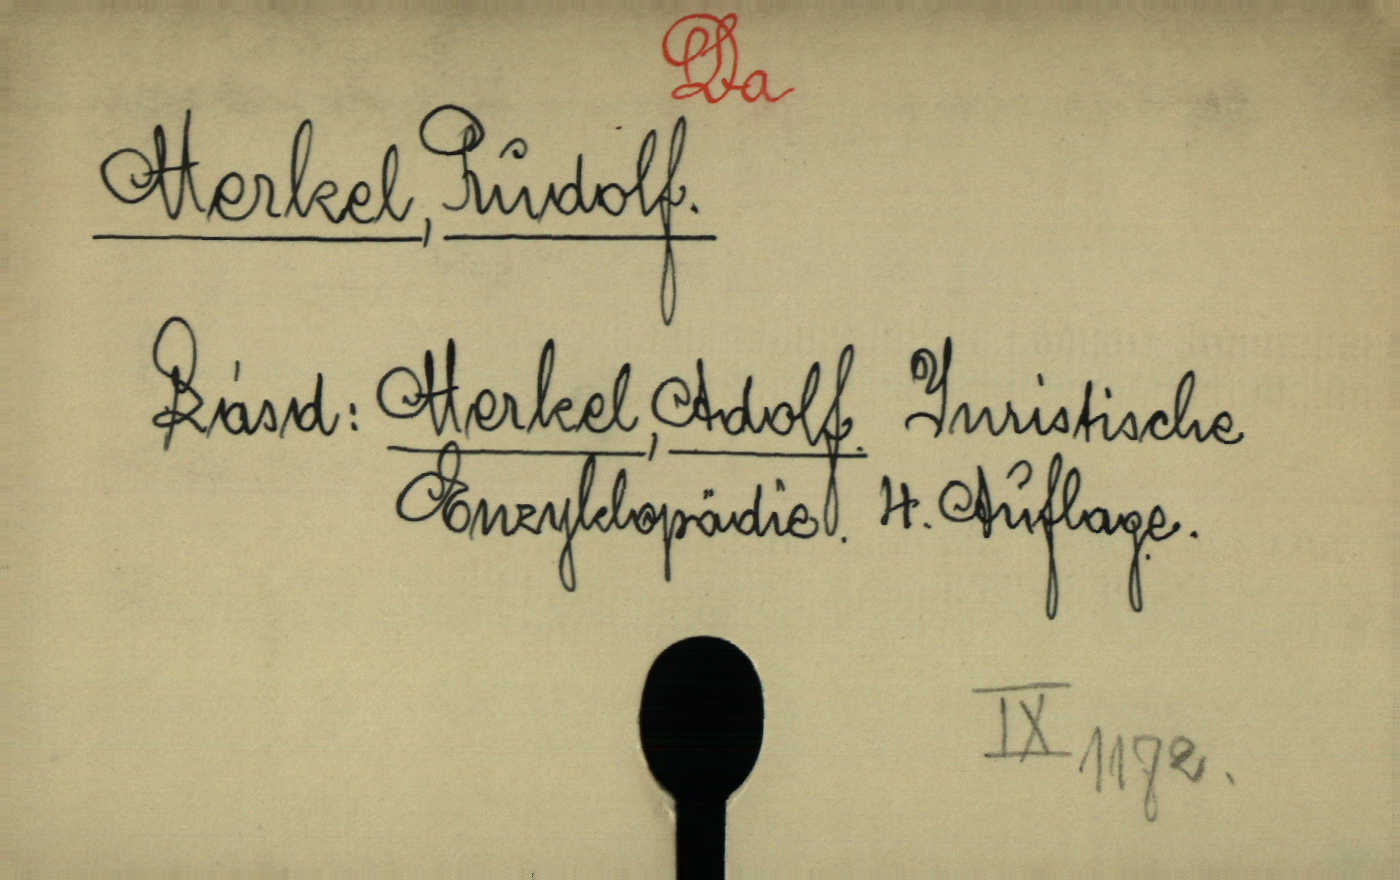 Da
Merkel, Rudolf.
Kiásd: Merkel, Adolf. Juristische
Enzyklopädie. 4. Auflage.
IX 1172.